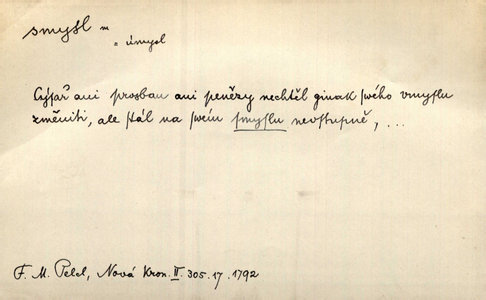 smysl m
„ úmysl
Cýsař ani prosbau ani penězy nechtěl ginak swého vmyslu
změniti, ale stál na swém smyslu neostupně, ...
F. M. Pelcl, Nová Kron. II. 305. 17. 1792